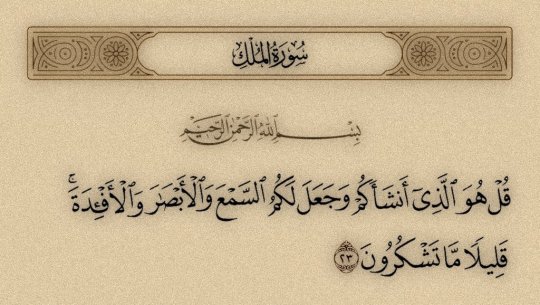 سُورَةُ الْمُلْكِ
بِسْمِ ٱللَّهِ ٱلرَّحْمَٰنِ ٱلرَّحِيمِ
قُلْ هُوَ ٱلَّذِىٓ أَنشَأَكُمْ وَجَعَلَ لَكُمُ ٱلسَّمْعَ وَٱلْأَبْصَٰرَ وَٱلْأَفْـِٔدَةَ ۖ
قَلِيلًا مَّا تَشْكُرُونَ ٢٣